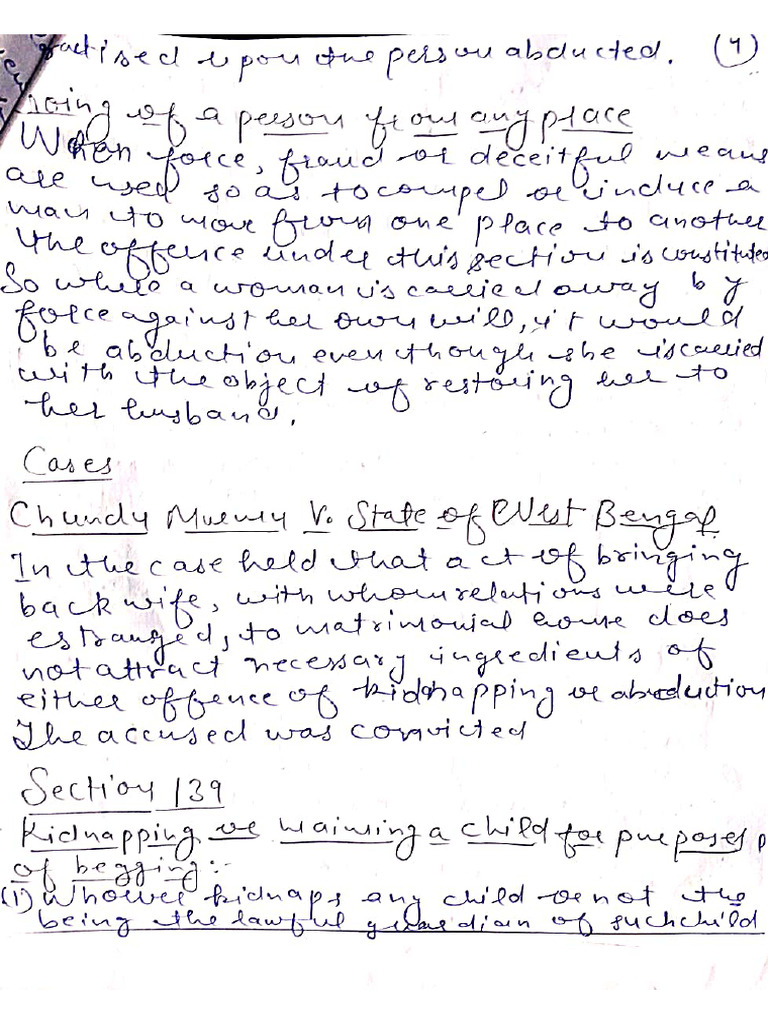 practised upon the person abducted. (4)
going of a person from any place
When force, fraud or deceitful means
are used so as to compel or induce a
man to move from one place to another
the offence under this section is constituted
So where a woman is carried away by
force against her own will, it would
be abduction even though she is carried
with the object of restoring her to
her husband.
Cases
Chundy Muemy V. State of West Bengal
In the case held that act of bringing
back wife, with whom relations were
estranged, to matrimonial home does
not attract necessary ingredients of
either offence of kidnapping or abduction
The accused was convicted
Section 139
Kidnapping or maiming a child for purposes
of begging:-
(1) Whoever kidnaps any child or not the
being the lawful guardian of such child